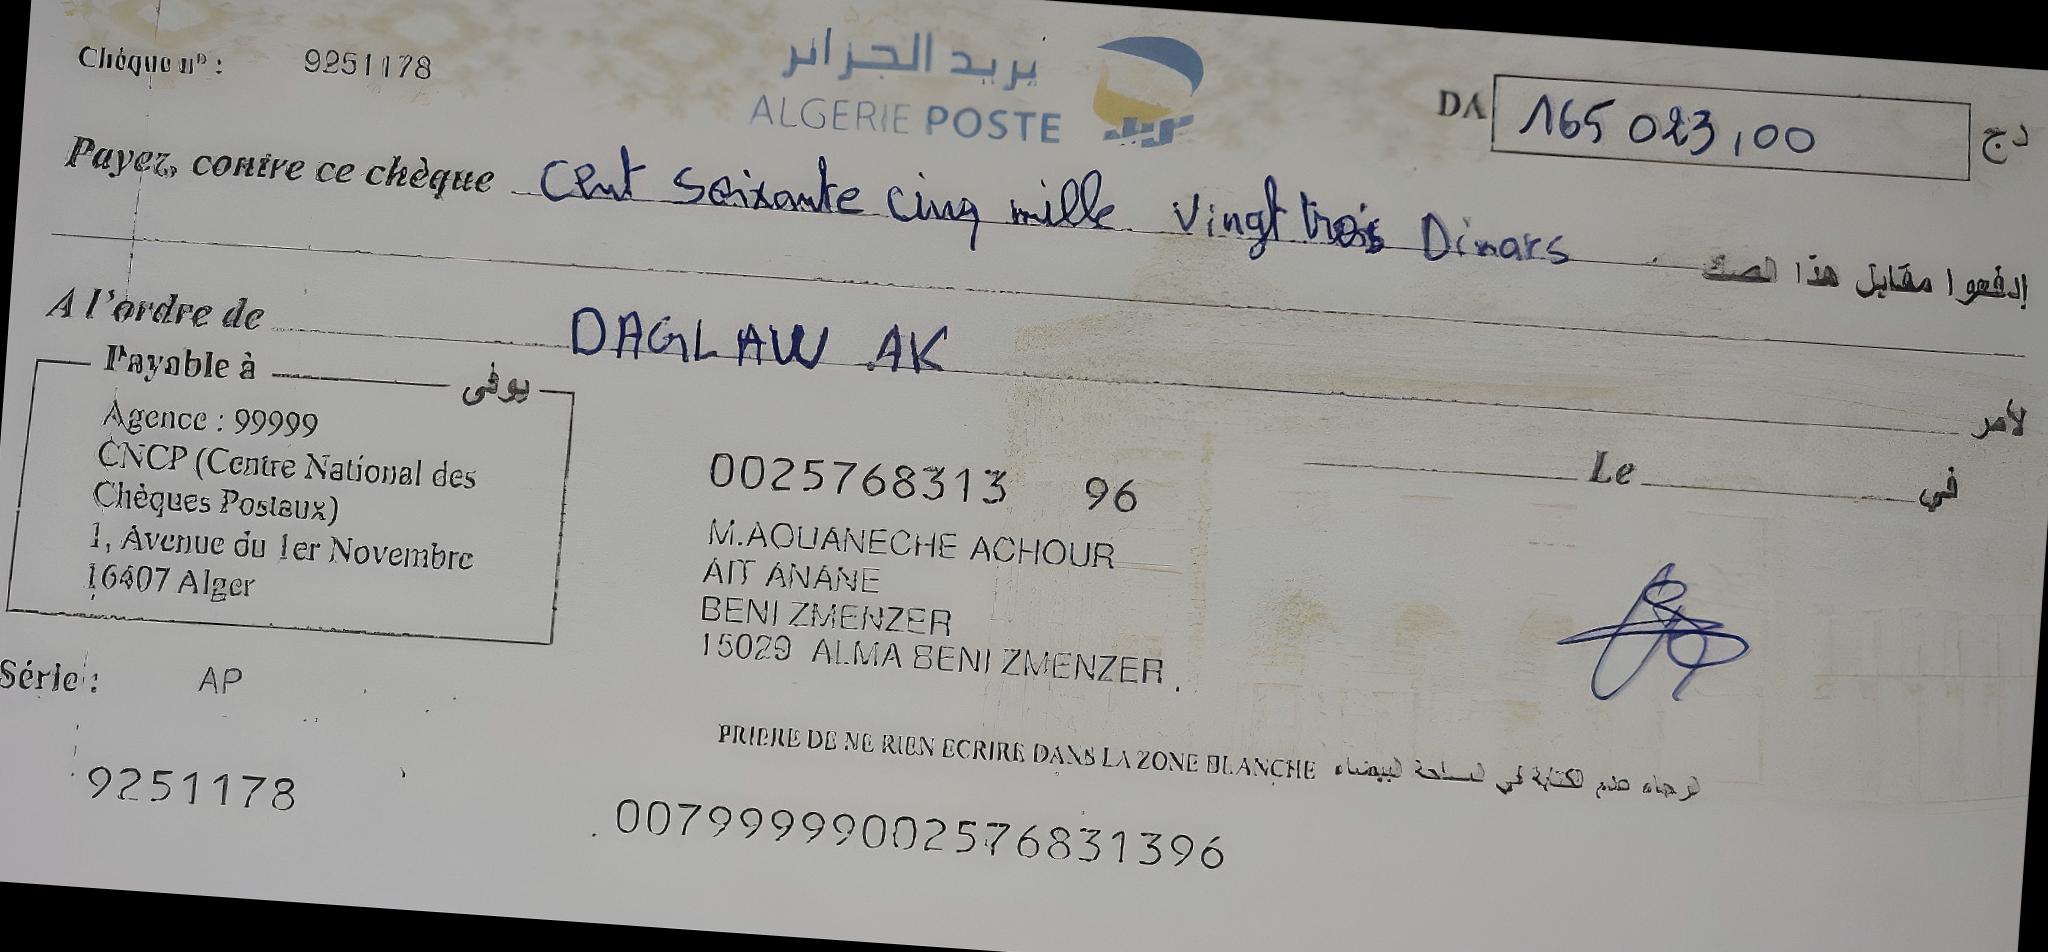 Chèque n° : 9251178
بريد الجزائر
ALGERIE POSTE
DA 165 023,00 دج
Payez, contre ce chèque Cent Soixante cinq mille Vingt trois Dinars إدفعوا مقابل هذا الصك
A l'ordre de DAGLAW AK لأمر
Payable à يوفى
Agence : 99999
CNCP (Centre National des
Chèques Postaux)
1, Avenue du 1er Novembre
16407 Alger
0025768313 96
Le في
M.AOUANECHE ACHOUR
AIT ANANE
BENI ZMENZER
15029 ALMA BENI ZMENZER
Série : AP
PRIERE DE NE RIEN ECRIRE DANS LA ZONE BLANCHE الرجاء عدم الكتابة في المساحة البيضاء
9251178
00799999002576831396